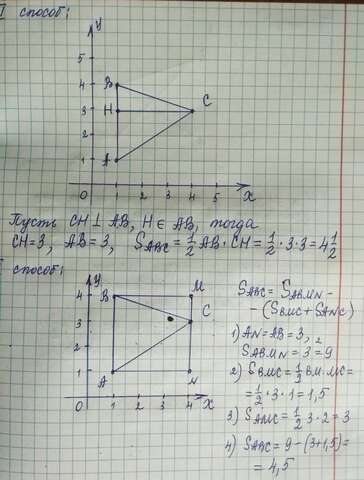 I способ:
y
5
4
3
2
1
0
1 2 3 4 5
x
B
H
C
A
Пусть CH⊥AB, H∈AB, тогда
CH=3, AB=3, S_ABC = 1/2 AB·CH = 1/2·3·3 = 4 1/2
способ:
y
4
3
2
1
0
1 2 3 4
x
B
M
C
A
N
S_ABC = S_ABMN −
− (S_BMC + S_ANC)
1) AN=AB=3,
S_ABMN = 3² = 9
2) S_BMC = 1/2 BM·MC=
= 1/2·3·1 = 1,5
3) S_ANC = 1/2 3·2 = 3
4) S_ABC = 9−(3+1,5)=
= 4,5